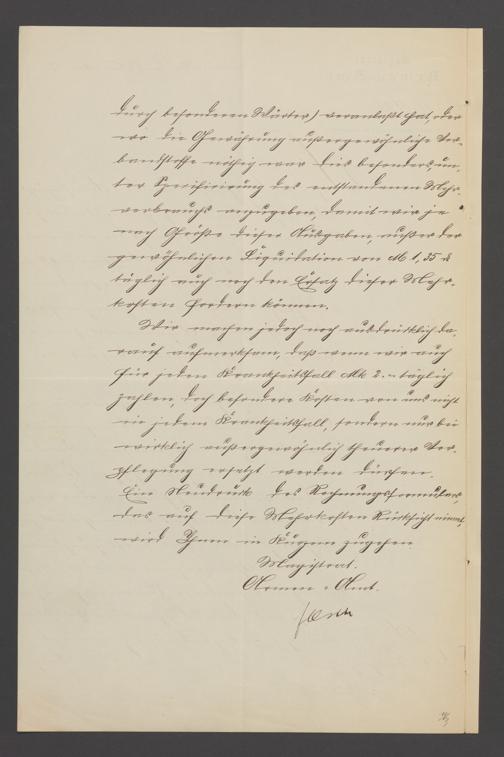 durch besonderen Wärter) veranlaßt hat, oder
wo die Gewährung außergewöhnliche Ver-
bandstoffe nöthig war dies besonders, un-
ter Specificirung des entstandenen Mehr-
verbrauchs anzugeben, damit wir je
nach Größe dieser Ausgaben, außer der
gewöhnlichen Liquidation von M 1,25 d
täglich auch noch den Ersatz dieser Mehr-
kosten fordern können.
Wir machen jedoch noch ausdrücklich da-
rauf aufmerksam, daß wenn wir auch
für jeden Krankheitsfall Mk 2.- täglich
zahlen, doch besondere Kosten von uns nicht
in jedem Krankheitsfall, sondern nur bei
wirklich außergewöhnlich theurer Ver-
pflegung ersetzt werden dürfen.
Ein Neudruck des Rechnungsformulars,
das auf diese Mehrkosten Rücksicht nimmt,
wird Ihnen in Kurzem zugehen.
Magistrat.
Armen-Amt.